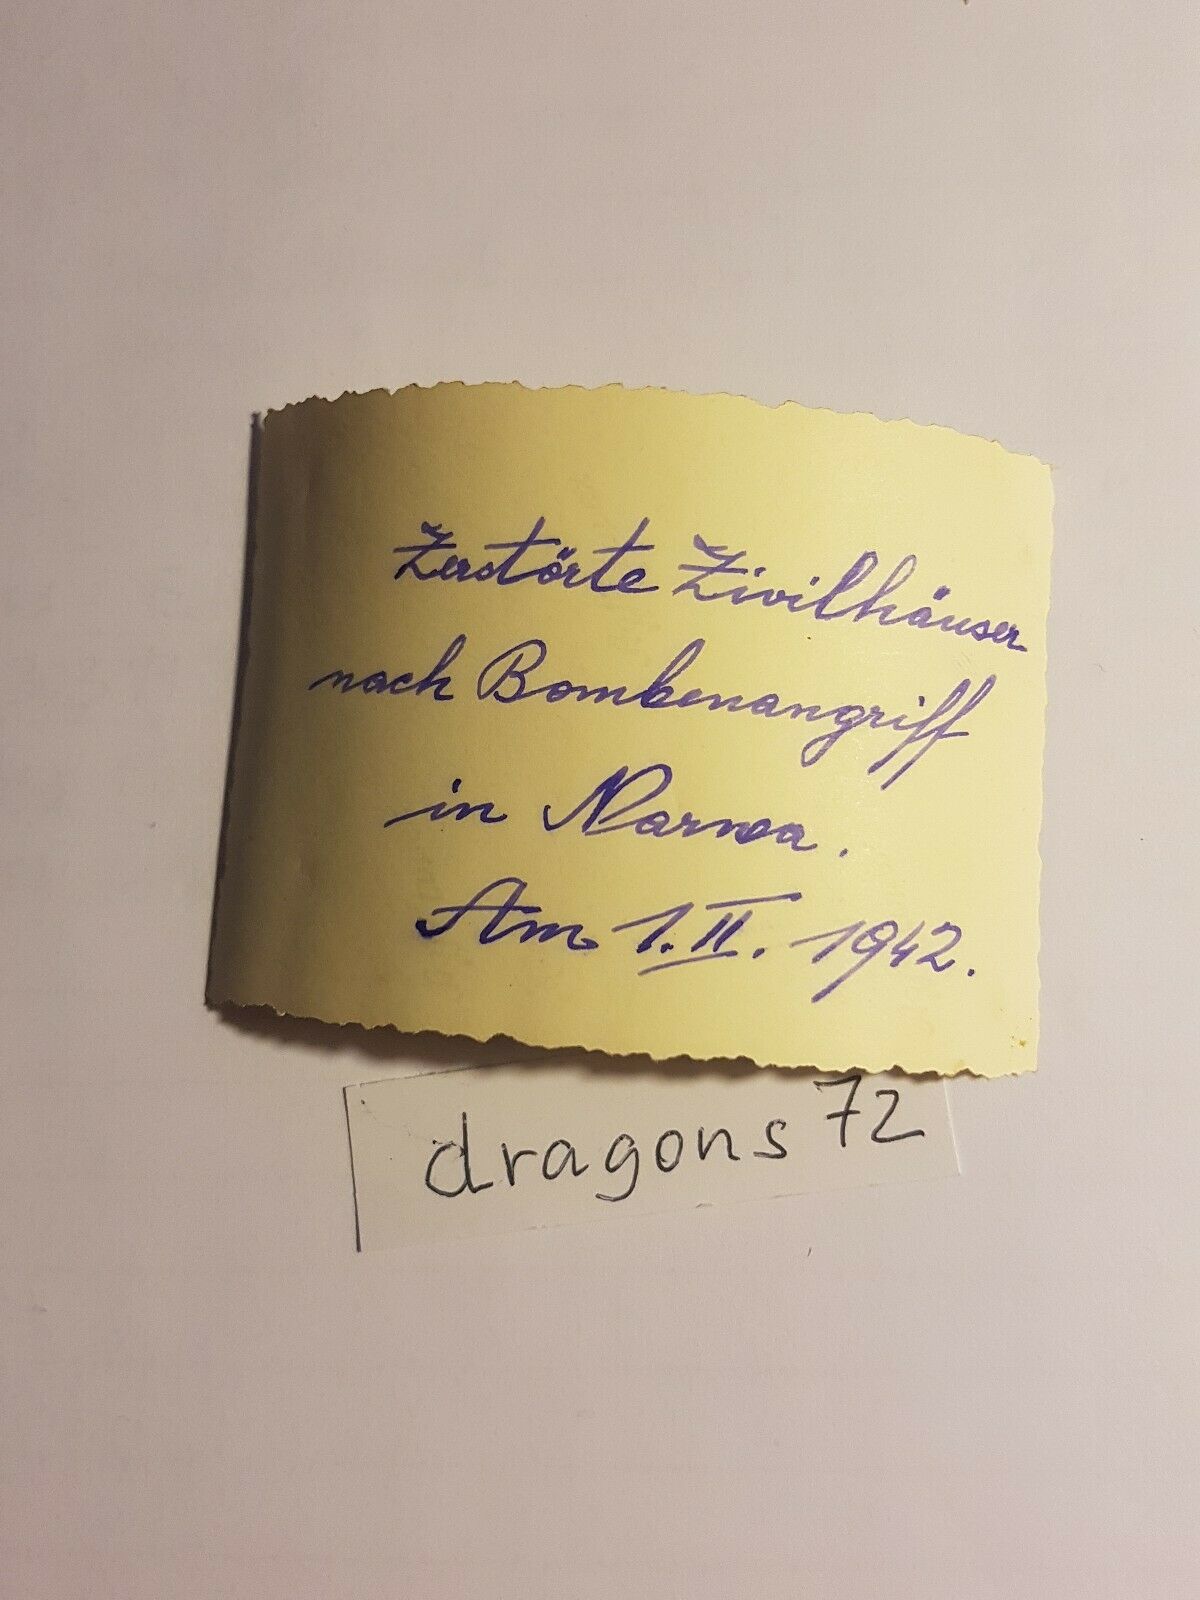 Zerstörte Zivilhäuser
nach Bombenangriff
in Narwa.
Am 1. II. 1942.
dragons72